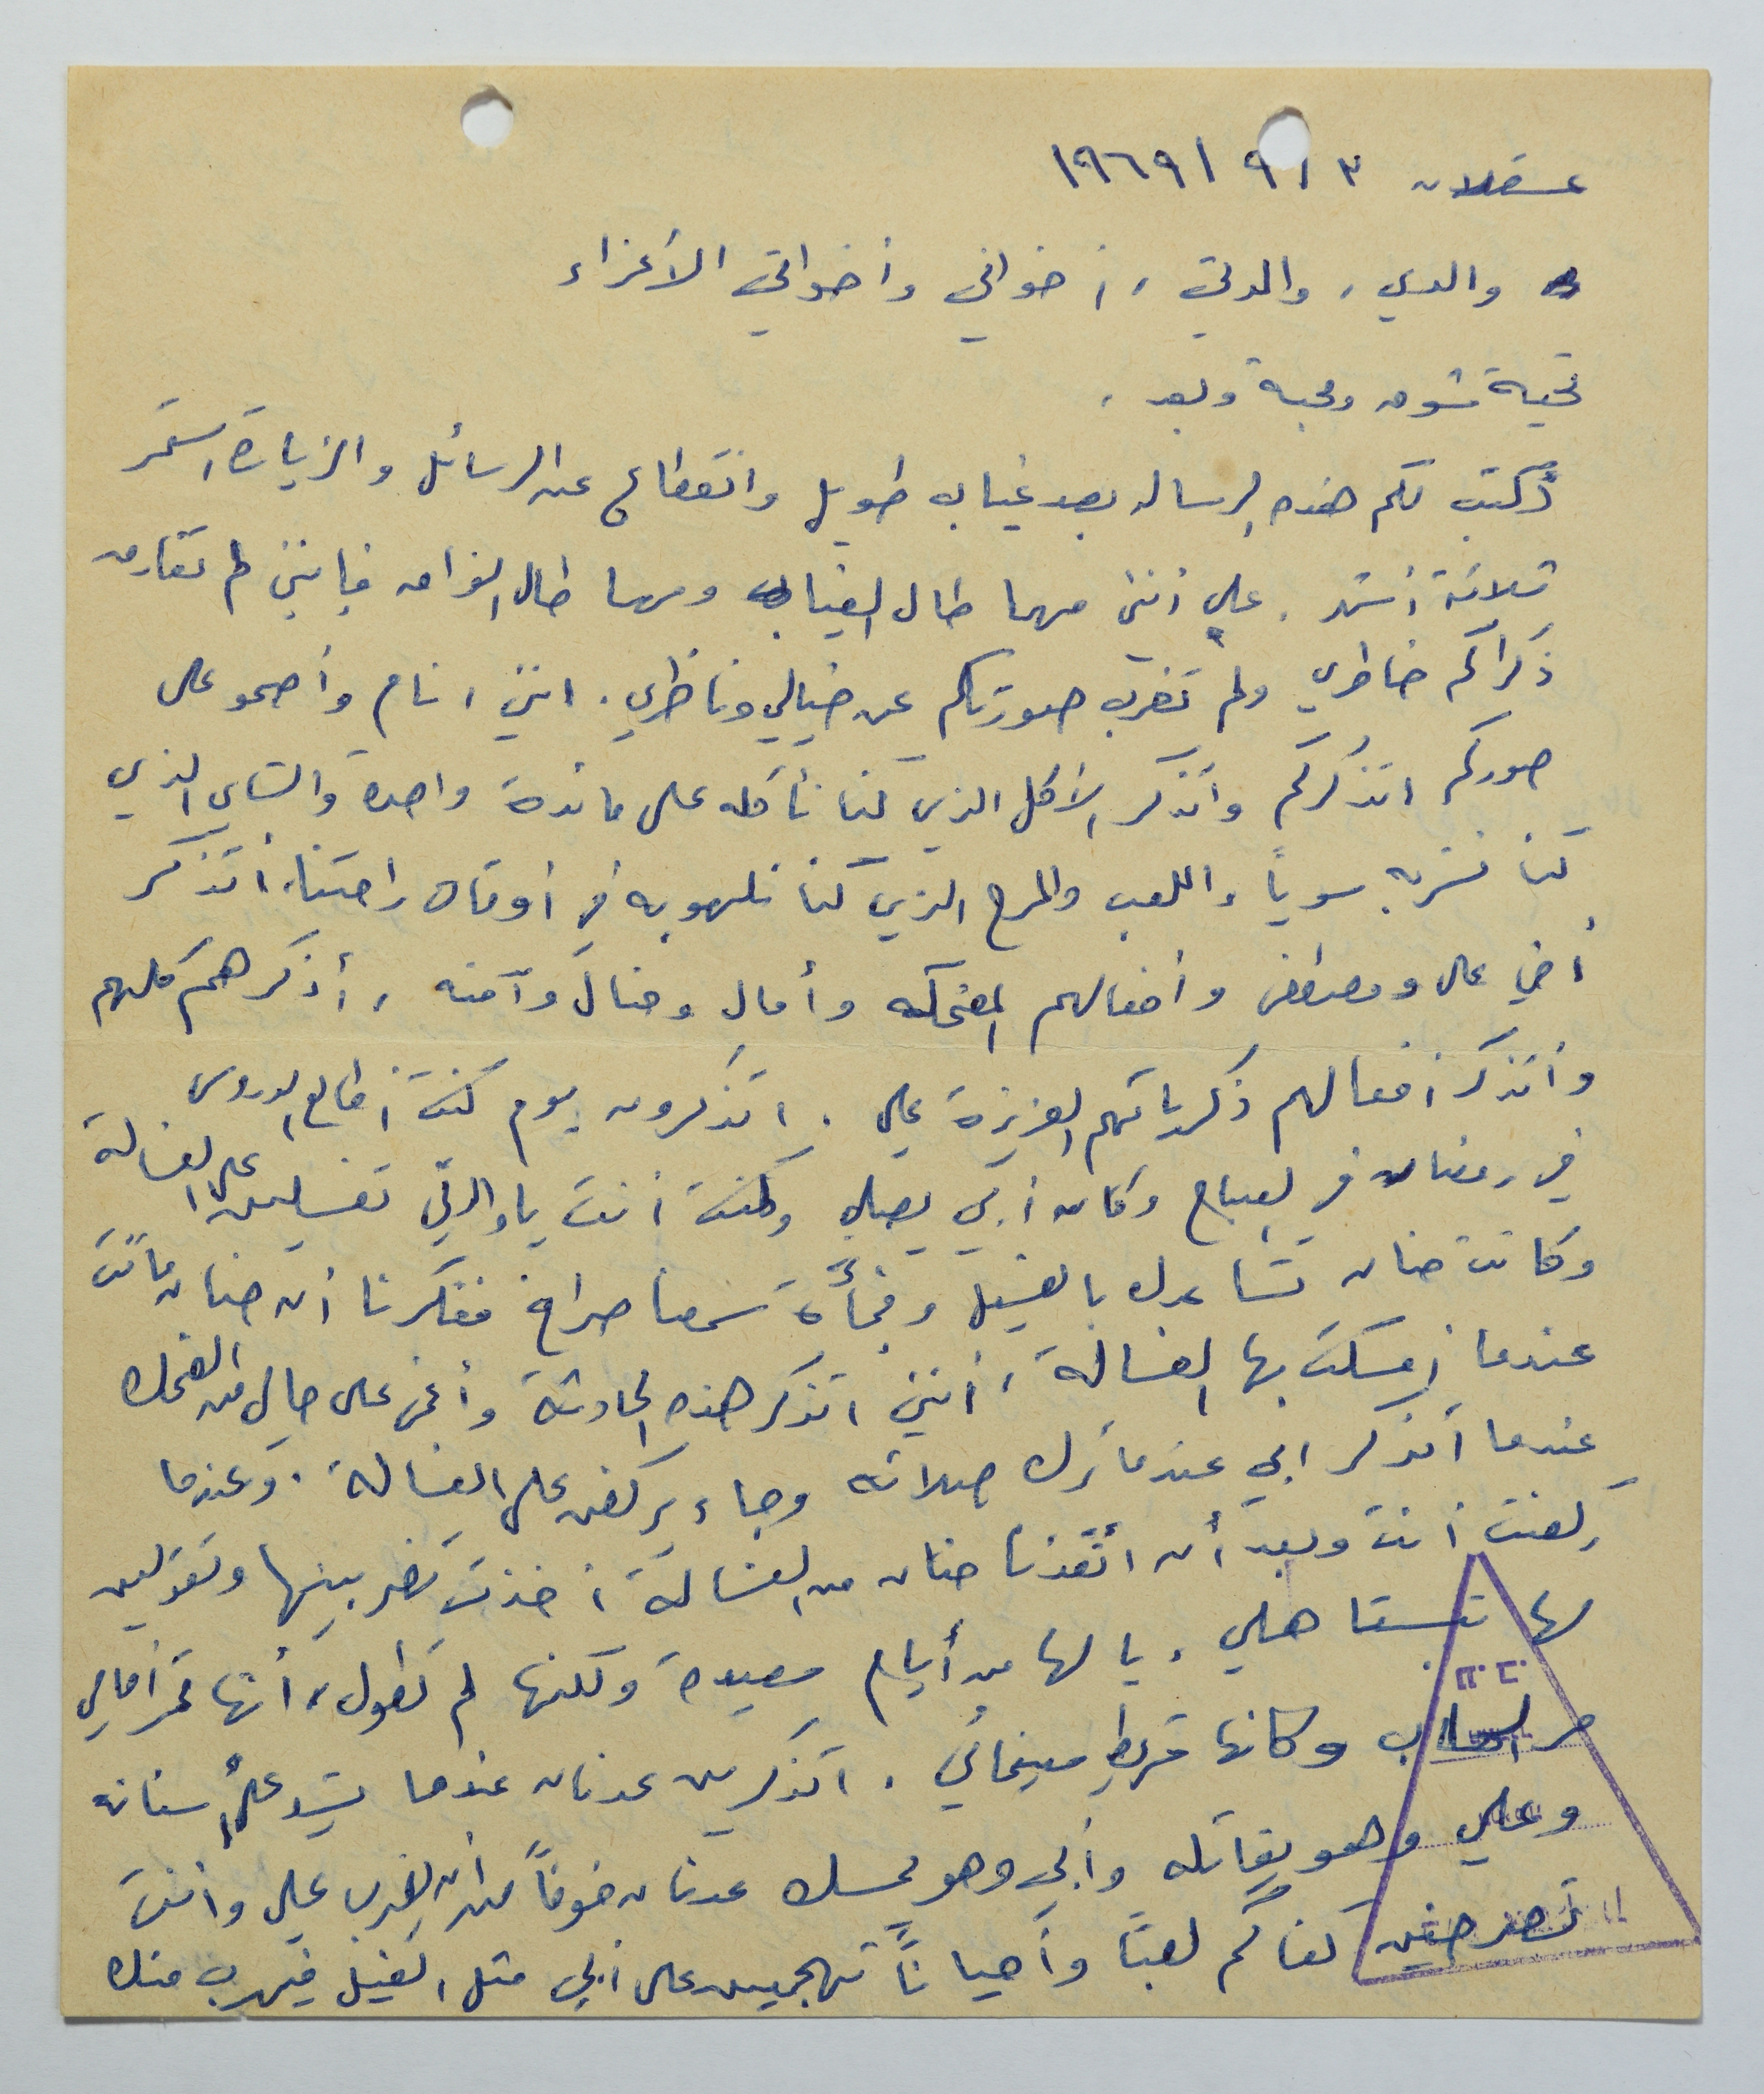 عسقلان ٣ / ٩ / ١٩٦٩
والدي، والدتي، أخواني وأخواتي الأعزاء
تحية شوق ومحبة وبعد،
أكتب لكم هذه الرسالة بعد غياب طويل وانقطاع عن الرسائل والزيارة استمر
ثلاثة أشهر. على أنني مهما طال الغياب ومهما طال الفراق فإنني لم تفارق
ذكراكم خاطري ولم تغرب صورتكم عن خيالي وناظري. انني انام وأصحو على
صوركم اتذكركم وأتذكر الأكل الذي كنا نأكله على مائدة واحدة والشاي الذي
كنا نشربه سوياً واللعب والمرح الذي كنا نلهو به في أوقات راحتنا. أتذكر
أخي علي ومصطفى وأفعالهم المضحكه وأمال وحنان وآمنه، أذكرهم كلهم
وأتذكر أفعالهم ذكرياتهم العزيزة علي. اتذكرون يوم كنت أطالع الدروس
في رمضان في الصباح وكان أبي يصلي وكنت أنت يا والدتي تغسلين على الغسالة
وكانت حنان تساعدك بالغسيل وفجأة سمعنا صراخ ففكرنا أن حنان ماتت
عندما أمسكت بها الغسالة، أنني اتذكر هذه الحادثة وأغمى على حالي من الضحك
عندما أتذكر ابي عندما ترك صلاته وجاء يركض على الغسالة. وعندما
ركضت أنت وبعد أن أنقذنا حنان من الغسالة أخذت تضربينها وتقولين
لها تستاهلي. يا لها من أيام سعيدة ولكنها لم تطول، أنها تمر أمامي
مر السحاب وكانها شريط سينمائي. اتذكرين عدنان عندما يشد على أسنانه
وعلي وهو يقاتله وأبي وهو يمسك عدنان خوفاً من أن يضرب علي وانت
تصرخين كفاكم لعباً وأحياناً تهجمين على أبي مثل الفيل فيهرب منك